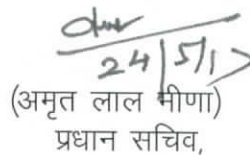 24/5/17
(अमृत लाल मीणा)
प्रधान सचिव,